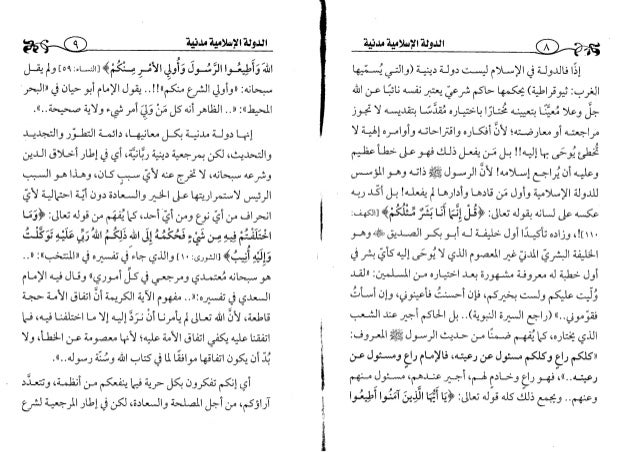 ٨
الدولة الإسلامية مدنية
إذًا فالدولة في الإسلام ليست دولة دينية (والتي يُسمّيها
الغرب: ثيوقراطية) يحكمها حاكم شرعيّ يعتبر نفسه نائبًا عن الله
جلّ وعلا مُعيَّنًا بتعيينه مُختارًا باختياره مُقدَّسًا بتقديسه لا تجوز
مراجعته أو معارضته؛ لأنّ أفكاره واقتراحاته وأوامره إلهية لا
تُخطئ يُوحَى بها إليه!! بل مَن يفعل ذلك فهو على خطأ عظيم
وعليه أن يُراجع إسلامه! لأنّ الرسول ﷺ ذاته وهو المؤسس
للدولة الإسلامية وأول مَن قادها وأدارها لم يفعله! بل أكد ربه
عكسه على لسانه بقوله تعالى: ﴿قُلْ إِنَّمَا أَنَا بَشَرٌ مِّثْلُكُمْ﴾ [الكهف:
١١٠]!، وزاده تأكيدًا أول خليفة له أبو بكر الصديق وهو
الخليفة البشريّ المدنيّ غير المعصوم الذي لا يُوحى إليه كأيّ بشر في
أول خطبة له معروفة مشهورة بعد اختياره من المسلمين: «لقد
وُلّيت عليكم ولست بخيركم، فإن أحسنت فأعينوني، وإن أسأتُ
فقوّموني..» (راجع السيرة النبوية).. بل الحاكم أجير عند الشعب
الذي يختاره، كما يُفهم ضمنًا من حديث الرسول ﷺ المعروف:
«كلكم راعٍ وكلكم مسئول عن رعيته، فالإمام راعٍ ومسئول عن
رعيته..»، فهو راعٍ وخادم لهم، أجير عندهم، مسئول منهم
وعنهم.. ويجمع ذلك كله قوله تعالى: ﴿يَا أَيُّهَا الَّذِينَ آمَنُوا أَطِيعُوا
الدولة الإسلامية مدنية
٩
اللهَ وَأَطِيعُوا الرَّسُولَ وَأُولِي الأَمْرِ مِنكُمْ﴾ [النساء: ٥٩] ولم يقل
سبحانه: «وأولي الشرع منكم»!!.. يقول الإمام أبو حيان في «البحر
المحيط»: «.. الظاهر أنه كل مَن وَلِيَ أمر شيء ولاية صحيحة..».
إنها دولة مدنية بكل معانيها، دائمة التطوّر والتجديد
والتحديث، لكن بمرجعية دينية ربَّانيَّة، أي في إطار أخلاق الدين
وشرعه سبحانه، لا تخرج عنه لأيّ سبب كان، وهذا هو السبب
الرئيس لاستمراريتها على الخير والسعادة دون أيّة احتمالية لأيّ
انحراف من أيّ نوع ومن أيّ أحد، كما يُفهَم من قوله تعالى: ﴿وَمَا
اخْتَلَفْتُمْ فِيهِ مِن شَيْءٍ فَحُكْمُهُ إِلَى اللهِ ذَلِكُمُ اللهُ رَبِّي عَلَيْهِ تَوَكَّلْتُ
وَإِلَيْهِ أُنِيبُ﴾ [الشورى: ١٠] والذي جاء في تفسيره في «المنتخب»: «..
هو سبحانه مُعتمدي ومرجعي في كلّ أموري» وقال فيه الإمام
السعدي في تفسيره: «.. مفهوم الآية الكريمة أنّ اتفاق الأمة حجة
قاطعة، لأنّ الله تعالى لم يأمرنا أن نردّ إليه إلا ما اختلفنا فيه، فما
اتفقنا عليه يكفي اتفاق الأمة عليه؛ لأنها معصومة عن الخطأ، ولا
بُدّ أن يكون اتفاقها موافقًا لما في كتاب الله وسُنّة رسوله..».
أي إنكم تفكرون بكل حرية فيما ينفعكم من أنظمة، وتتعدَّد
آراؤكم، من أجل المصلحة والسعادة، لكن في إطار المرجعية لشرع